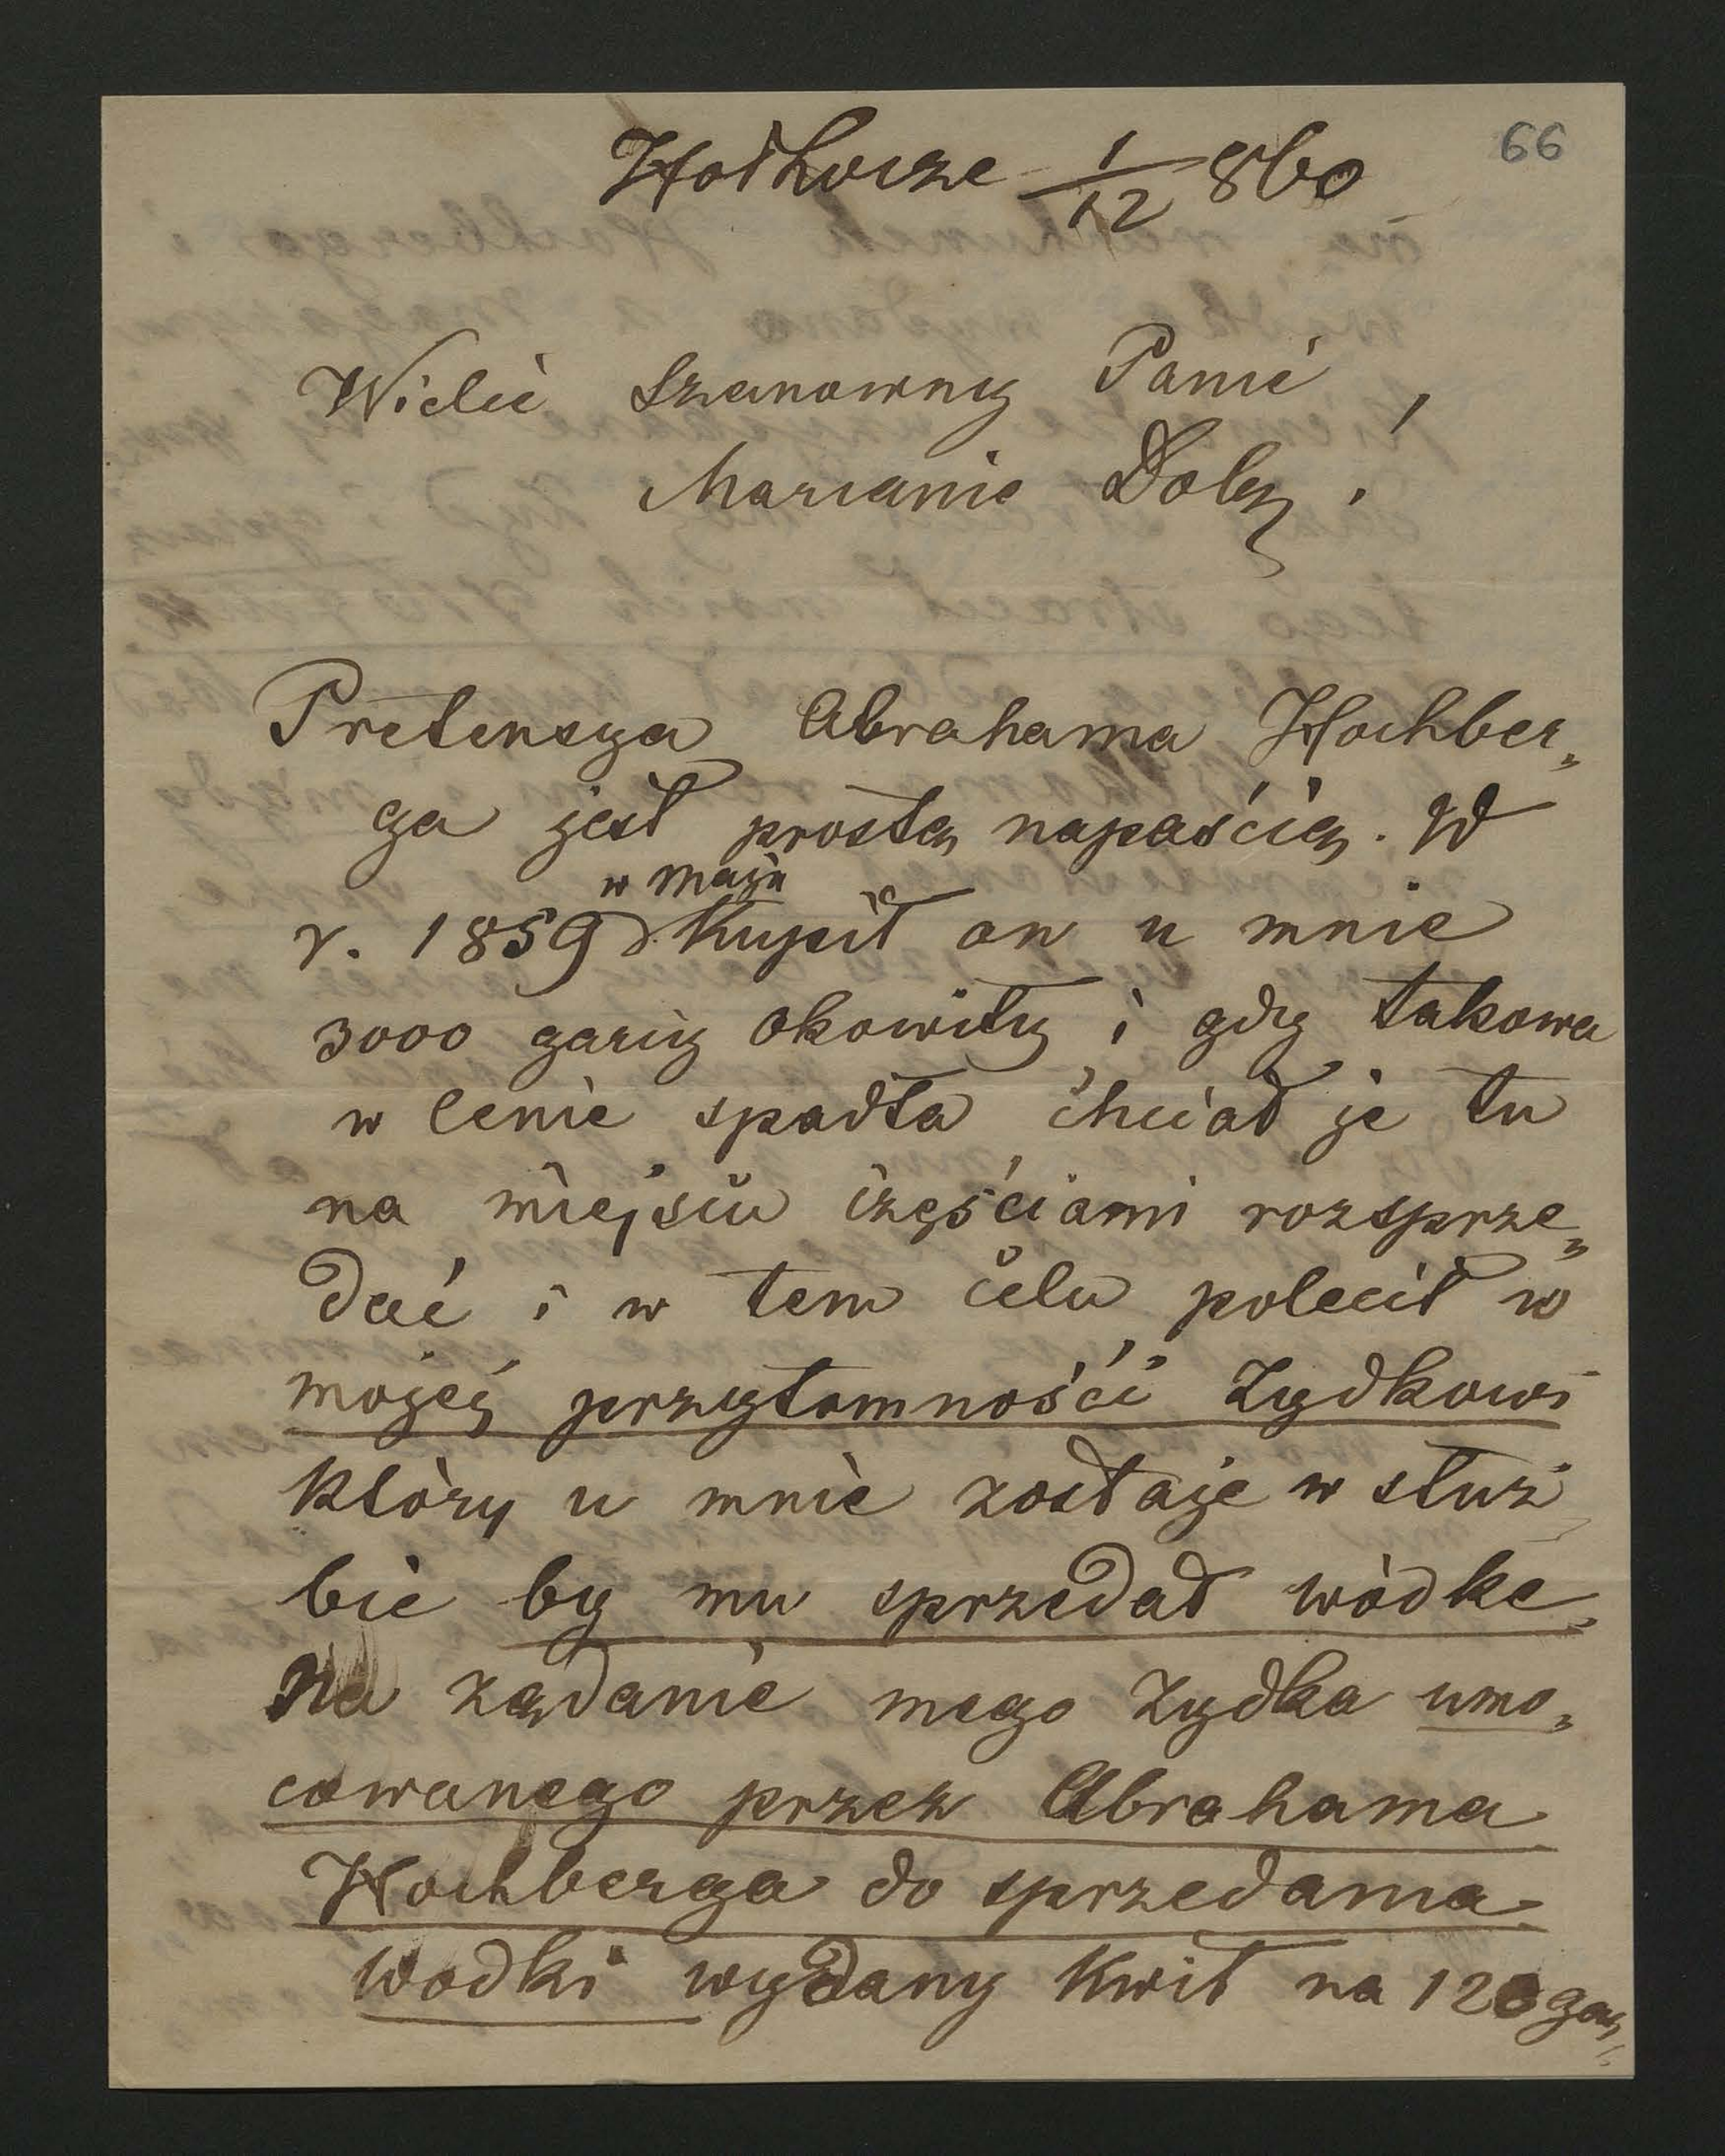 66
Hołhocze 1/12 860
Wielce Szanowny Panie
Marianie Dob. !
Pretensya Abrahama Hochber„
ga jest prostą napaścią. W
w maju
r. 1859 kupił on u mnie
3000 garcy okowity i gdy takowa
w cenie spadła chciał je tu
na miejscu częściami rozsprze„
dać i w tem celu polecił w
mojej przytomności Zydkowi
który u mnie zostaje w służ
bie by mu sprzedał wódkę„
Na żądanie mego Zydka umo„
cowanego przez Abrahama
Hochberga do sprzedania
wodki wydany kwit na 120 gar„